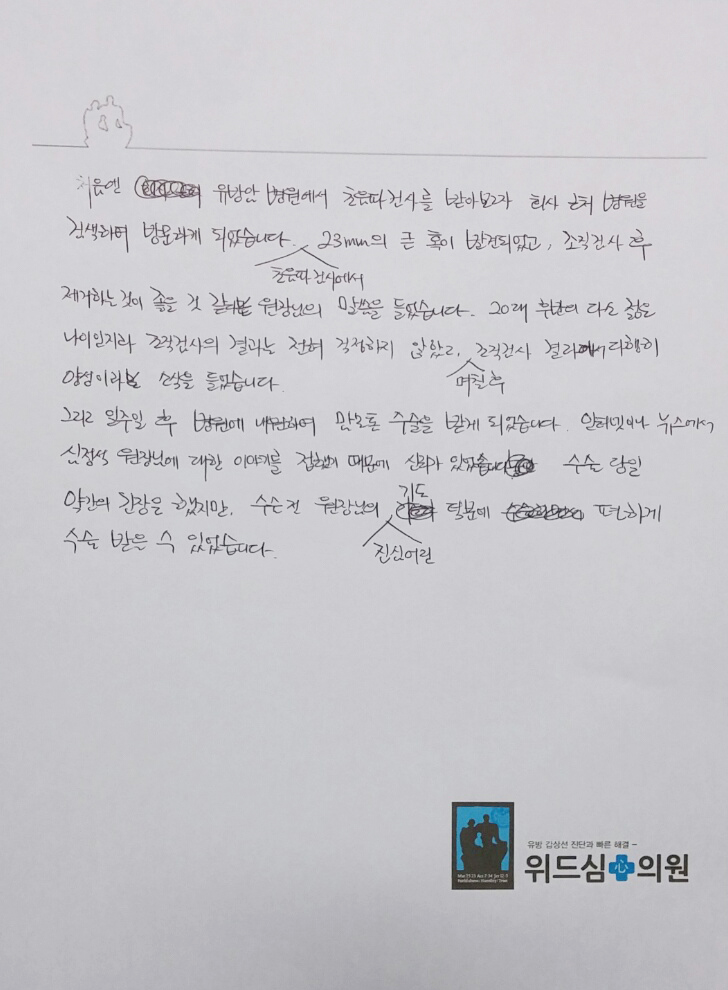 처음엔 유방암 병원에서 초음파검사를 받아보고자 회사 근처 병원을
검색하여 방문하게 되었습니다. 초음파검사에서 23mm의 큰 혹이 발견되었고, 조직검사 후
제거하는것이 좋을 것 같다는 원장님의 말씀을 들었습니다. 20대 후반의 다소 젊은
나이인지라 조직검사의 결과는 전혀 걱정하지 않았고, 며칠후 조직검사 결과에서 다행히
양성이라는 소식을 들었습니다.
그리고 일주일 후 병원에 내원하여 맘모톤 수술을 받게 되었습니다. 인터넷이나 뉴스에서
심정석 원장님에 대한 이야기를 접했기 때문에 신뢰가 있었습니다 수술 당일
약간의 긴장을 했지만, 수술전 원장님의 진심어린 기도 덕분에 편하게
수술 받을 수 있었습니다.
유방 갑상선 진단과 빠른 해결 –
위드심心의원